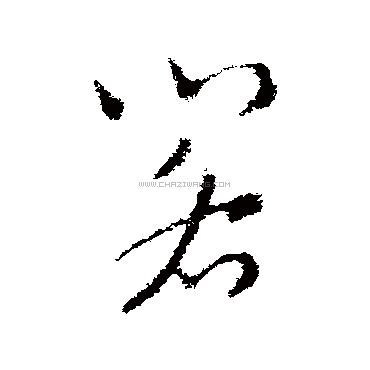 若
WWW.CHAZIWANG.COM